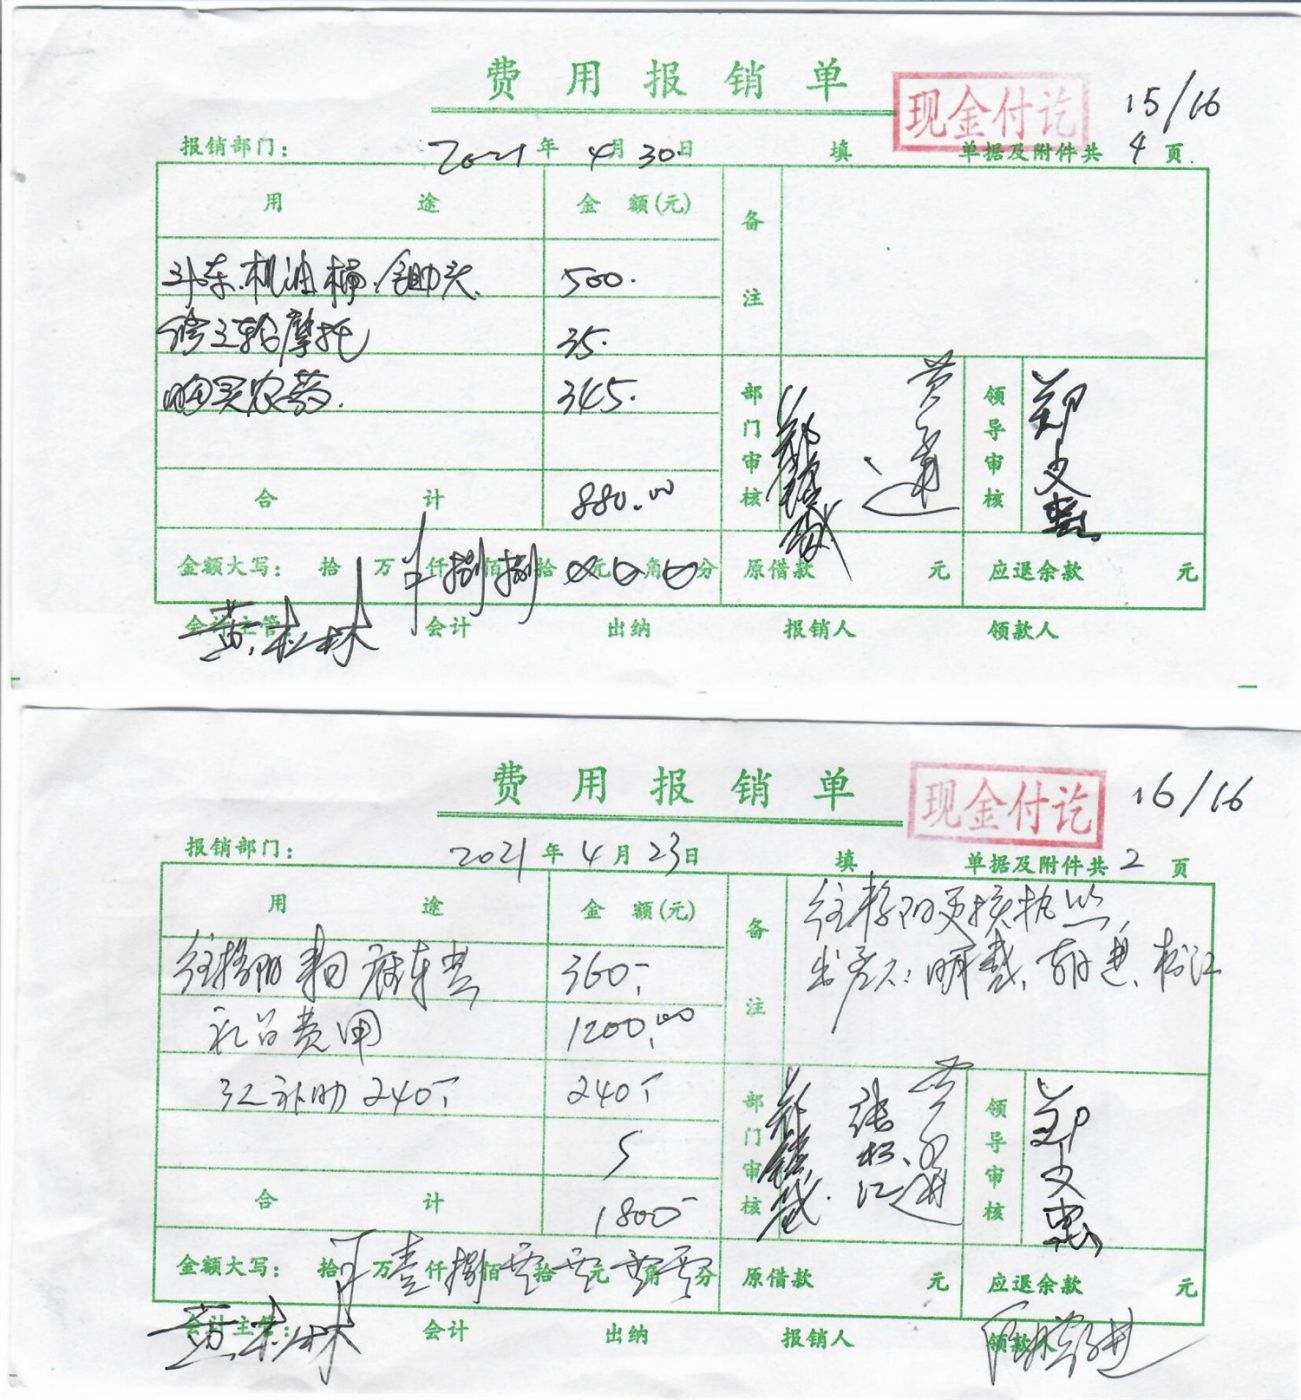 费用报销单
现金付讫
15/16
报销部门: 2021年4月30日 填 单据及附件共4页
用途 金额(元) 备注
斗车.机油桶.锄头 500.
修三轮摩托 35.
购买农药. 345.
合计 880.00
部门审核 领导审核 郑文惠
金额大写: 拾万仟捌佰捌拾0元0角0分 原借款 元 应退余款 元
会计主管 黄松林 会计 出纳 报销人 领款人
费用报销单
现金付讫
16/16
报销部门: 2021年4月23日 填 单据及附件共2页
用途 金额(元) 备注
更换执照
来回 车费 360
礼品费用 1200.00
误工补助240 240
合计 1800
部门审核 张松江 领导审核 郑文惠
金额大写: 拾万壹仟捌佰零拾零元零角零分 原借款 元 应退余款 元
会计主管: 黄松林 会计 出纳 报销人 领款人